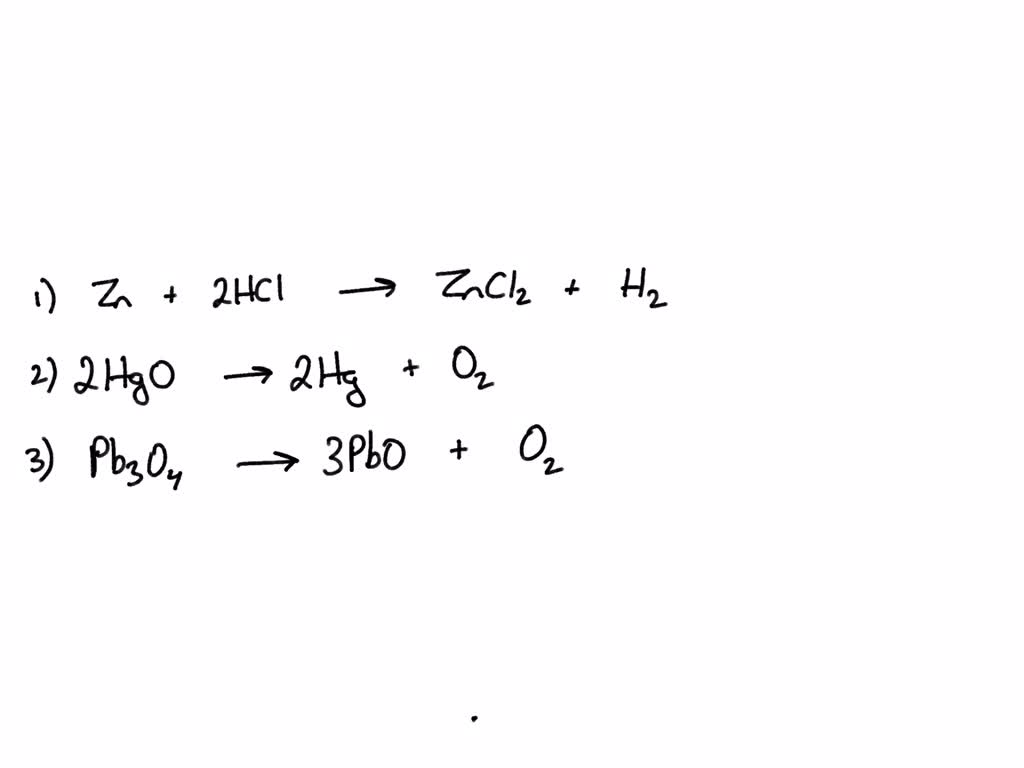 1) Zn + 2HCl → ZnCl₂ + H₂
2) 2HgO → 2Hg + O₂
3) Pb₃O₄ → 3PbO + O₂